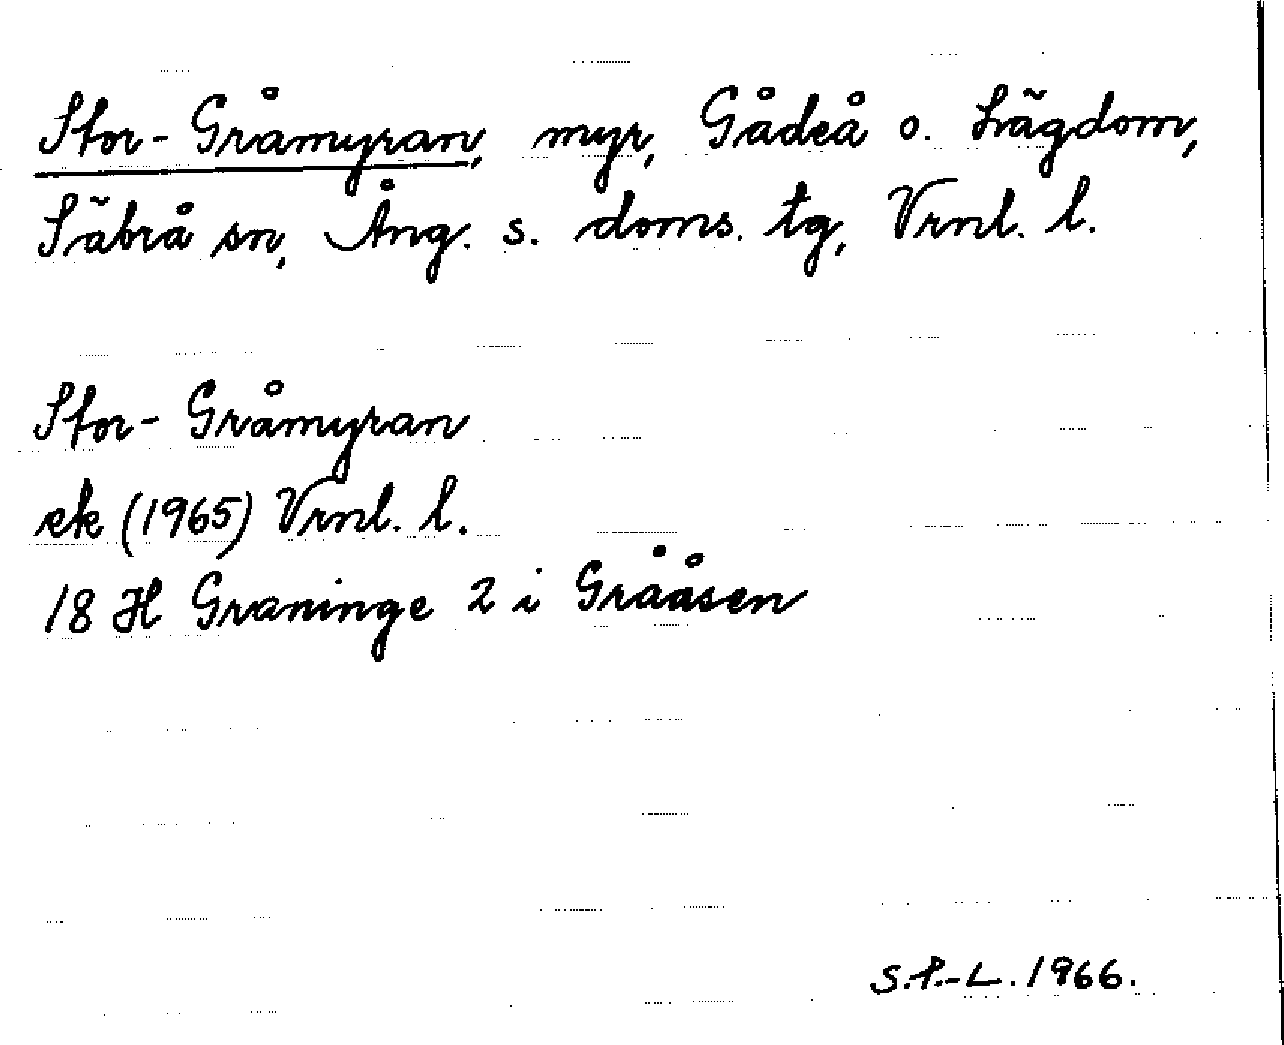 Stor-Gråmyran, myr, Gådeå o. Lägdom,
Säbrå sn, Ång. s. doms. tg, Vrnl. l.
Stor-Gråmyran
ek (1965) Vrnl. l.
18 H Graninge 2 i Grååsen
S.P.-L. 1966.